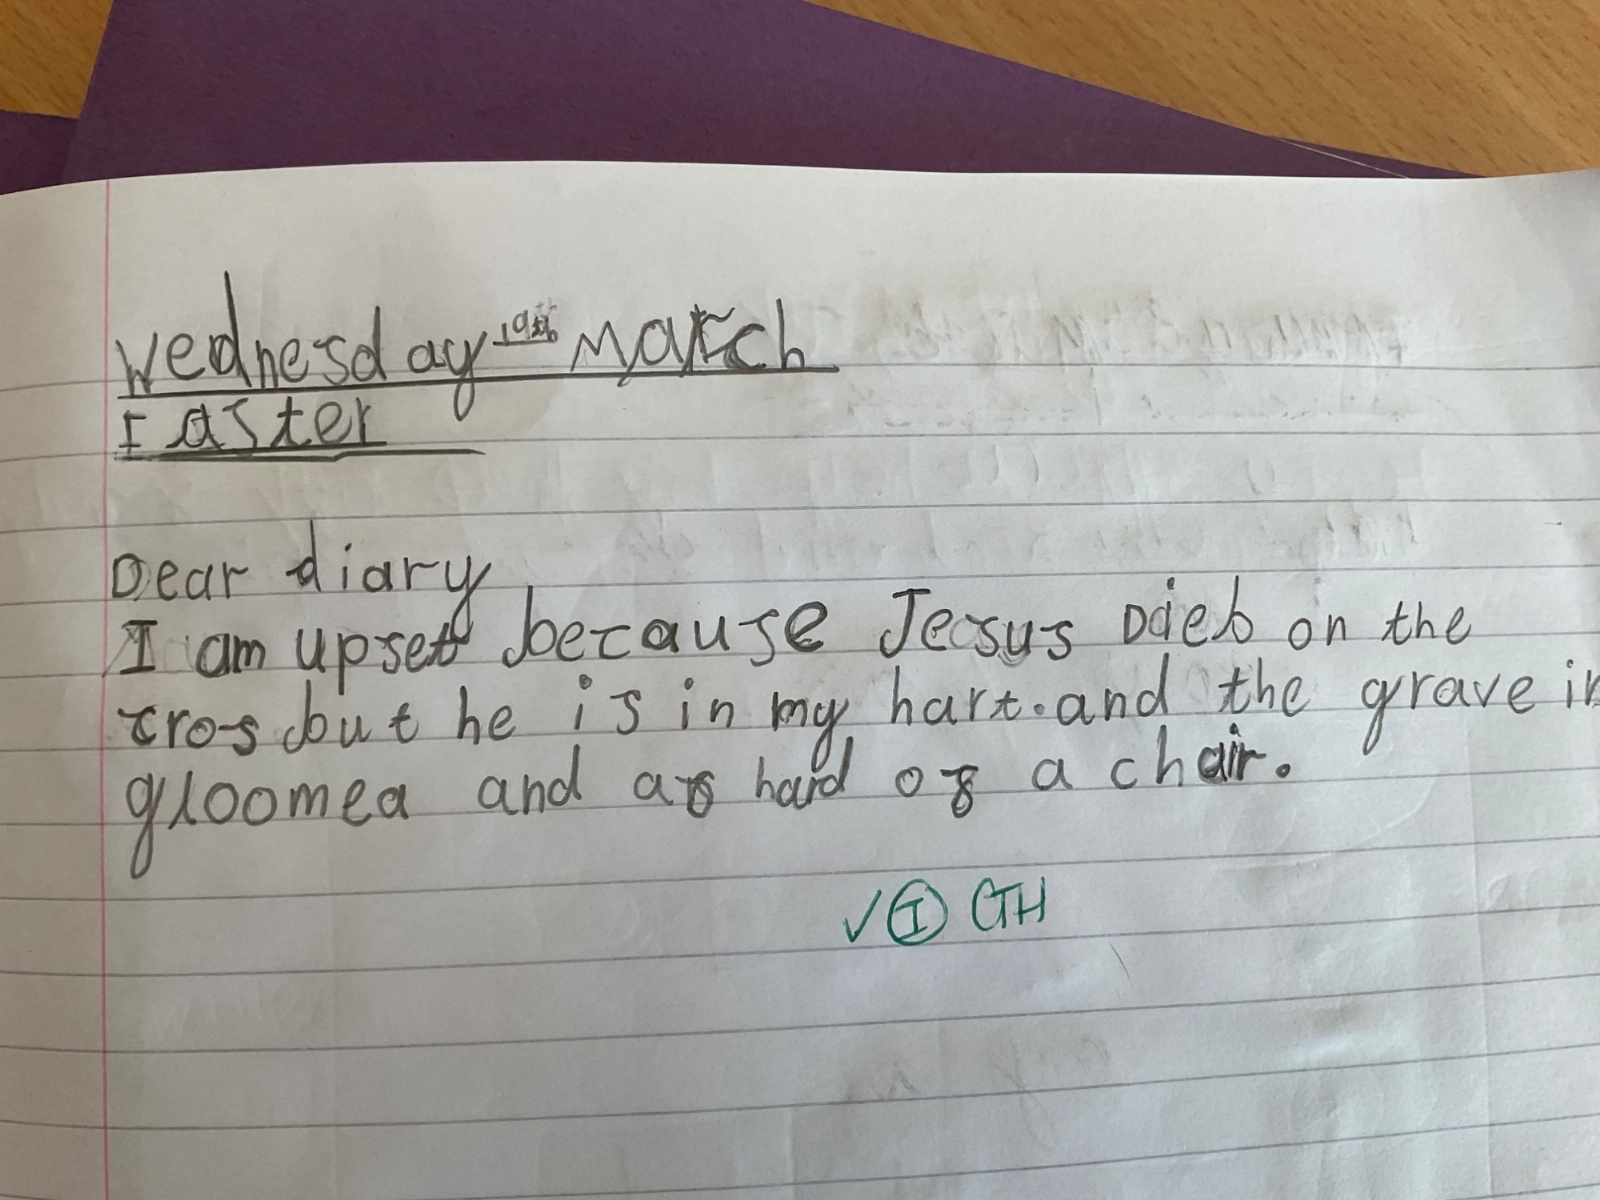 Wednesday 19th March
Easter
Dear diary
I am upset because Jesus Dieb on the
cros but he is in my hart. and the grave in
gloomea and as hard os a chair.
✓ I GH